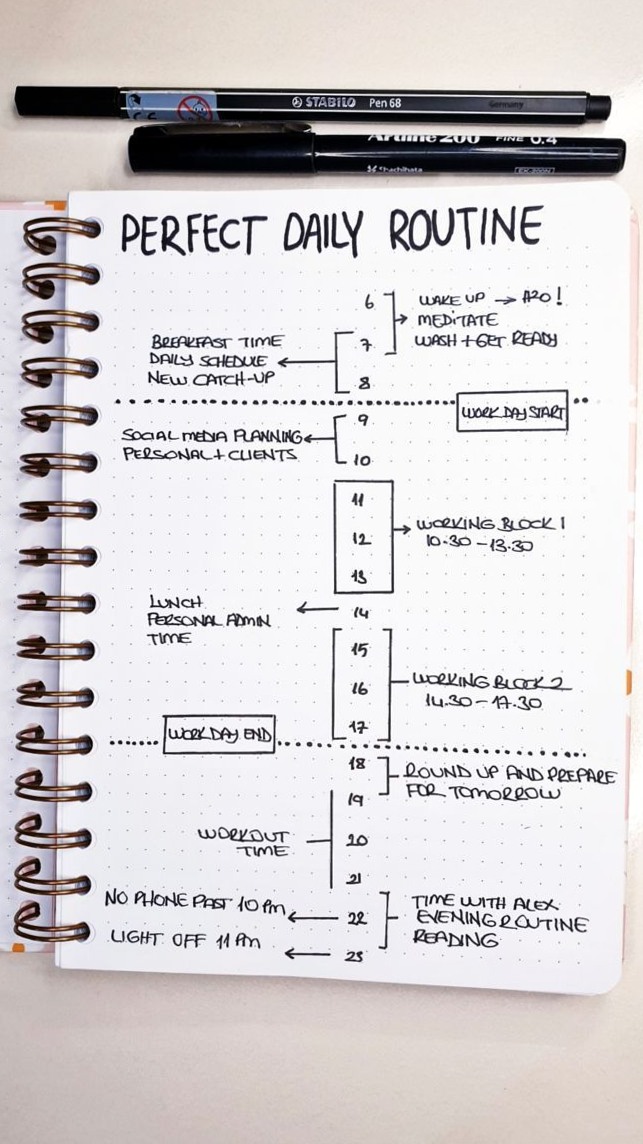 STABILO Pen 68 Germany
Artline 200 FINE 0.4
Shachihata
EK-200N
PERFECT DAILY ROUTINE
6
WAKE UP → H2O!
MEDITATE
WASH + GET READY
7
BREAKFAST TIME
DAILY SCHEDULE
NEW CATCH-UP
8
WORK DAY START
9
SOCIAL MEDIA PLANNING
PERSONAL + CLIENTS
10
11
12
WORKING BLOCK 1
10.30 - 13.30
13
LUNCH
PERSONAL ADMIN
TIME
14
15
16
WORKING BLOCK 2
14.30 - 17.30
17
WORK DAY END
18
ROUND UP AND PREPARE
FOR TOMORROW
19
WORKOUT
TIME
20
21
NO PHONE PAST 10 PM
22
TIME WITH ALEX
EVENING ROUTINE
READING
LIGHT OFF 11 PM
23